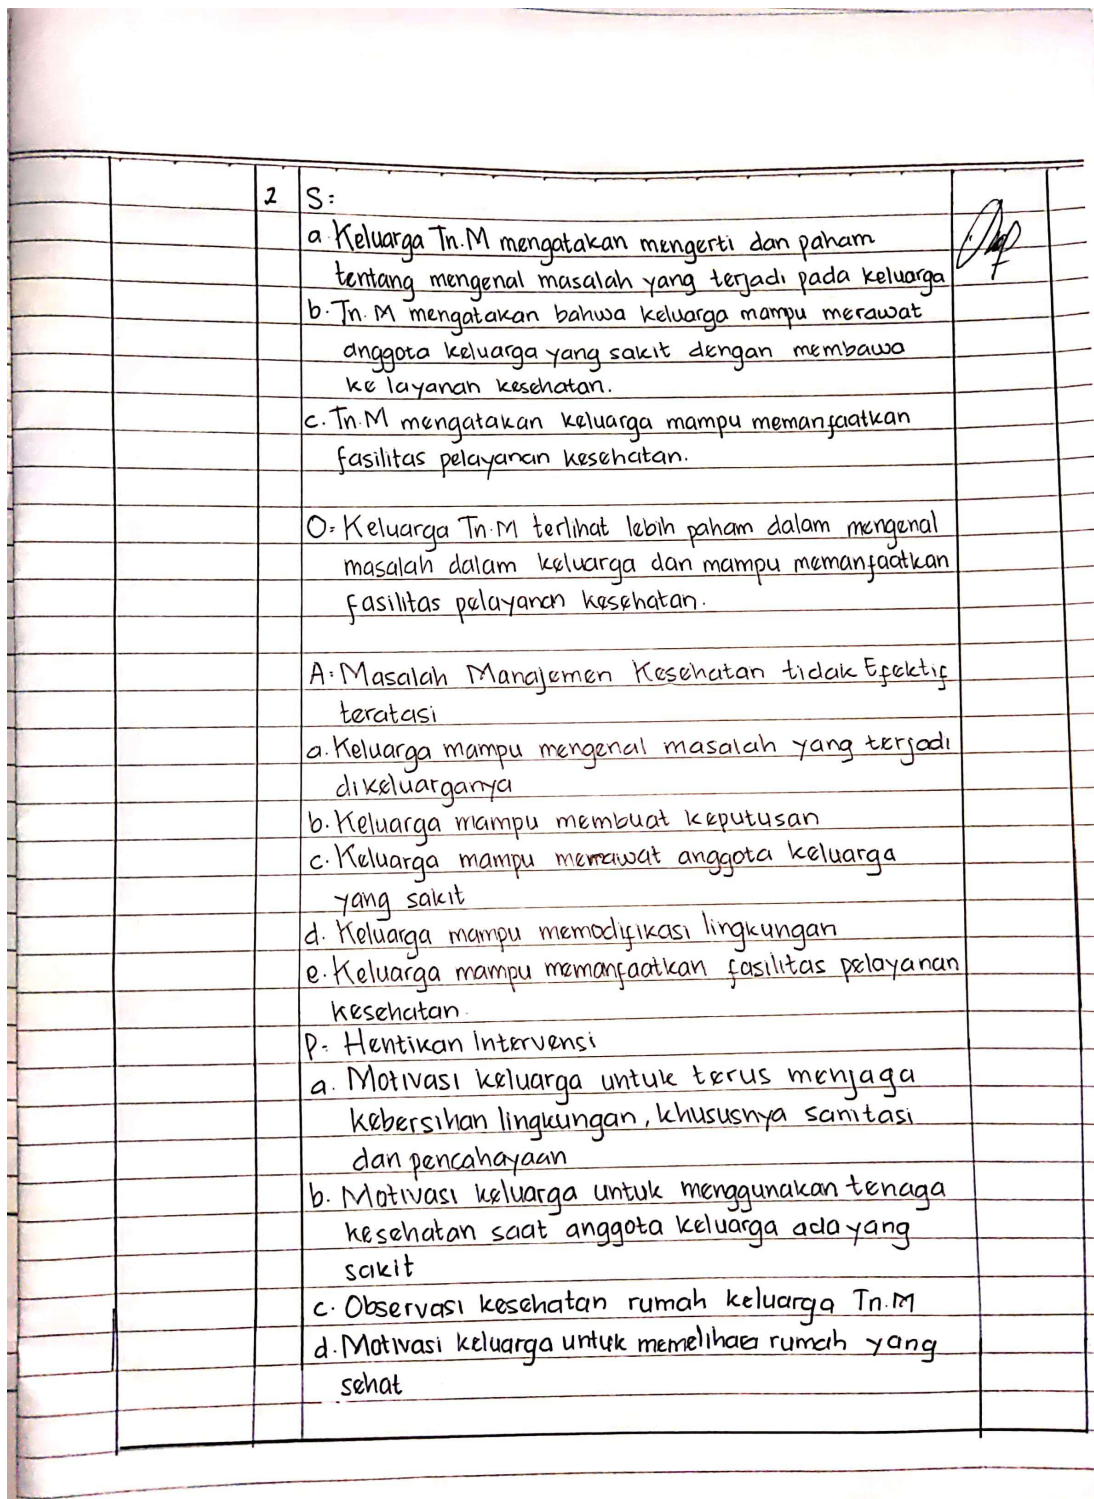 2 S:
a. Keluarga Tn.M mengatakan mengerti dan paham
tentang mengenal masalah yang terjadi pada keluarga
b. Tn. M mengatakan bahwa keluarga mampu merawat
anggota keluarga yang sakit dengan membawa
ke layanan kesehatan.
c. Tn.M mengatakan keluarga mampu memanfaatkan
fasilitas pelayanan kesehatan.
O: Keluarga Tn.M terlihat lebih paham dalam mengenal
masalah dalam keluarga dan mampu memanfaatkan
fasilitas pelayanan kesehatan.
A: Masalah Manajemen Kesehatan tidak Efektif
teratasi
a. Keluarga mampu mengenal masalah yang terjadi
dikeluarganya
b. Keluarga mampu membuat keputusan
c. Keluarga mampu merawat anggota keluarga
yang sakit
d. Keluarga mampu memodifikasi lingkungan
e. Keluarga mampu memanfaatkan fasilitas pelayanan
kesehatan.
P: Hentikan Intervensi
a. Motivasi keluarga untuk terus menjaga
kebersihan lingkungan, khususnya sanitasi
dan pencahayaan
b. Motivasi keluarga untuk menggunakan tenaga
kesehatan saat anggota keluarga ada yang
sakit
c. Observasi kesehatan rumah keluarga Tn.M
d. Motivasi keluarga untuk memelihara rumah yang
sehat